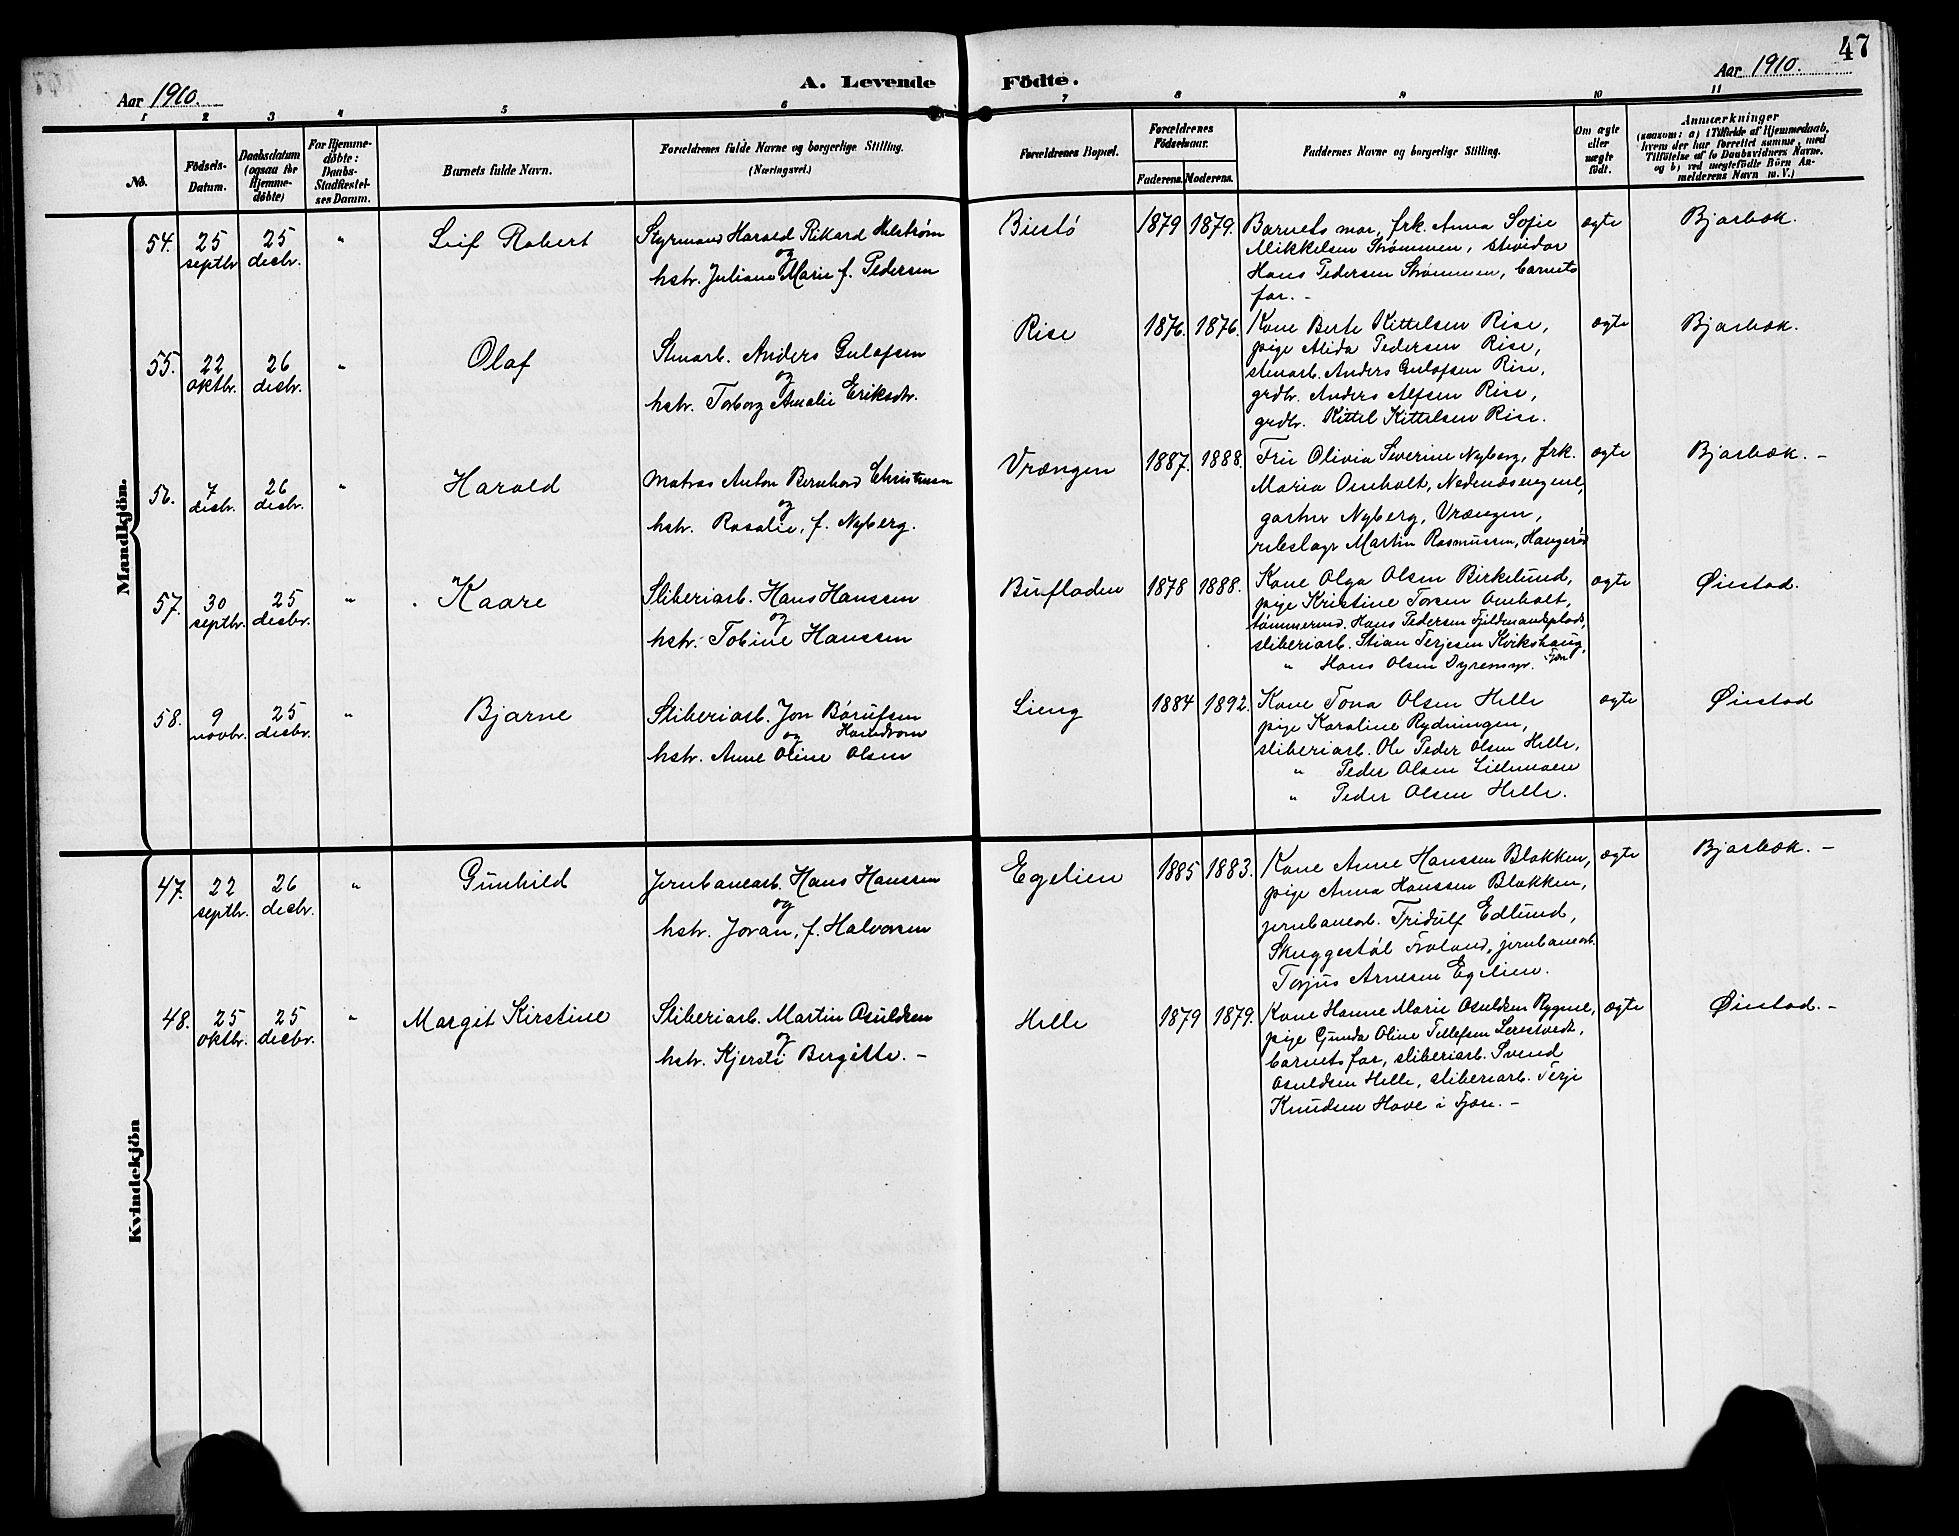 47
Aar 1910.
A. Levende
Födte.
Aar 1910.
1 2 3 4 5 6 7 8 9 10 11
No.
Födsels-
Datum.
Daabsdatum
(ogsaa for
Hjemme-
døbte)
For Hjemme-
døbte:
Daabs-
Stadfæstel-
ses Datum.
Barnets fulde Navn.
Forældrenes fulde Navne og borgerlige Stilling.
(Næringsvei.)
Forældrenes Bopæl.
Forældrenes
Födselsaar.
Faderens. Moderens.
Faddernes Navne og borgerlige Stilling.
Om ægte
eller
uægte
födt.
Anmærkninger
(saasom: a) i Tilfælde af Hjemmedaab,
hvem der har forrettet samme, med
Tilføielse af to Daabsvidners Navne,
og b) ved uægtefödte Börn An-
melderens Navn m. V.)
Mandkjön.
54. 25 septbr. 25 desbr. "
Leif Robert
Styrmand Harald Rikard Helstrøm
og
hstr. Juliane Marie f. Pedersen
Biestø
1879 1879.
Barnets mor, frk. Anna Sofie
Mikkelsen Strømmen, stuidar
Hans Pedersen Strømmen, barnets
far. -
ægte
Bjorbæk.
55. 22 oktbr. 26 desbr. "
Olaf
Stenarb. Anders Gulofsen
og
hstr. Torborg Amalie Eriksdtr.
Rise
1876. 1876.
Kone Berte Kittelsen Rise,
pige Alida Pedersen Rise,
stenarb. Anders Gulofsen Rise,
grdbr. Anders Alfsen Rise,
grdbr. Kittel Kittelsen Rise.
ægte
Bjorbæk.
56. 7 desbr. 26 desbr. "
Harald
Matros Anton Bernhard Christensen
og
hstr. Rosalie, f. Nyberg.
Vrængen
1887. 1888.
Fru Olivia Severine Nyborg, frk.
Maria Omholt, Nedenæsengene,
gartner Nyberg, Vrængen,
rebslagr Martin Rasmussen, Haugerød
ægte
Bjorbæk. -
57. 30 septbr. 25 desbr. "
Kaare
Sliberiarb. Hans Hanssen
og
hstr. Tobine Hanssen
Buifladen
1878 1888.
Kone Olga Olsen Birkelund,
pige Kristine Torsen Omholt,
tømmermd. Hans Pedersen
sliberiarb. Stian Terjesen Kvikshaug,
" Hans Olsen Dyremyr. Fjæn
ægte
Øiestad.
58. 9 novbr. 25 desbr. "
Bjarne
Sliberiarb. Jon Børufsen
og
hstr. Anne Oline Olsen
Lieng
1884 1892.
Kone Tona Olsen Helle
pige Karoline Rydningen,
sliberiarb. Ole Peder Olsen Helle,
" Peder Olsen Lillemoen
" Peder Olsen Helle.
ægte
Øiestad
Kvindekjön
47. 22 septbr. 26 desbr. "
Gunhild
Jernbanearb. Hans Hanssen
og
hstr. Joran, f. Halvorsen
Egelien
1885 1883.
Kone Anne Hanssen Blakken,
pige Anna Hanssen Blakken,
jernbanearb. Fridulf Edlund,
Skuggestøl Froland, jernbanearb.
Torjus Arnesen Egelien.
ægte
Bjorbæk. -
48. 25 oktbr. 25 desbr. "
Margit Kirstine
Sliberiarb. Martin Osuldsen
og
hstr. Kjersti Birgitte. -
Helle
1879 1879.
Kone Hanne Marie Osuldsen Rygene,
pige Gunda Oline Tellefsen Lerestvedt,
barnets far, sliberiarb. Svend
Osuldsen Helle, sliberiarb. Terje
Knudsen Hove i Fjære. -
ægte
Øiestad. -